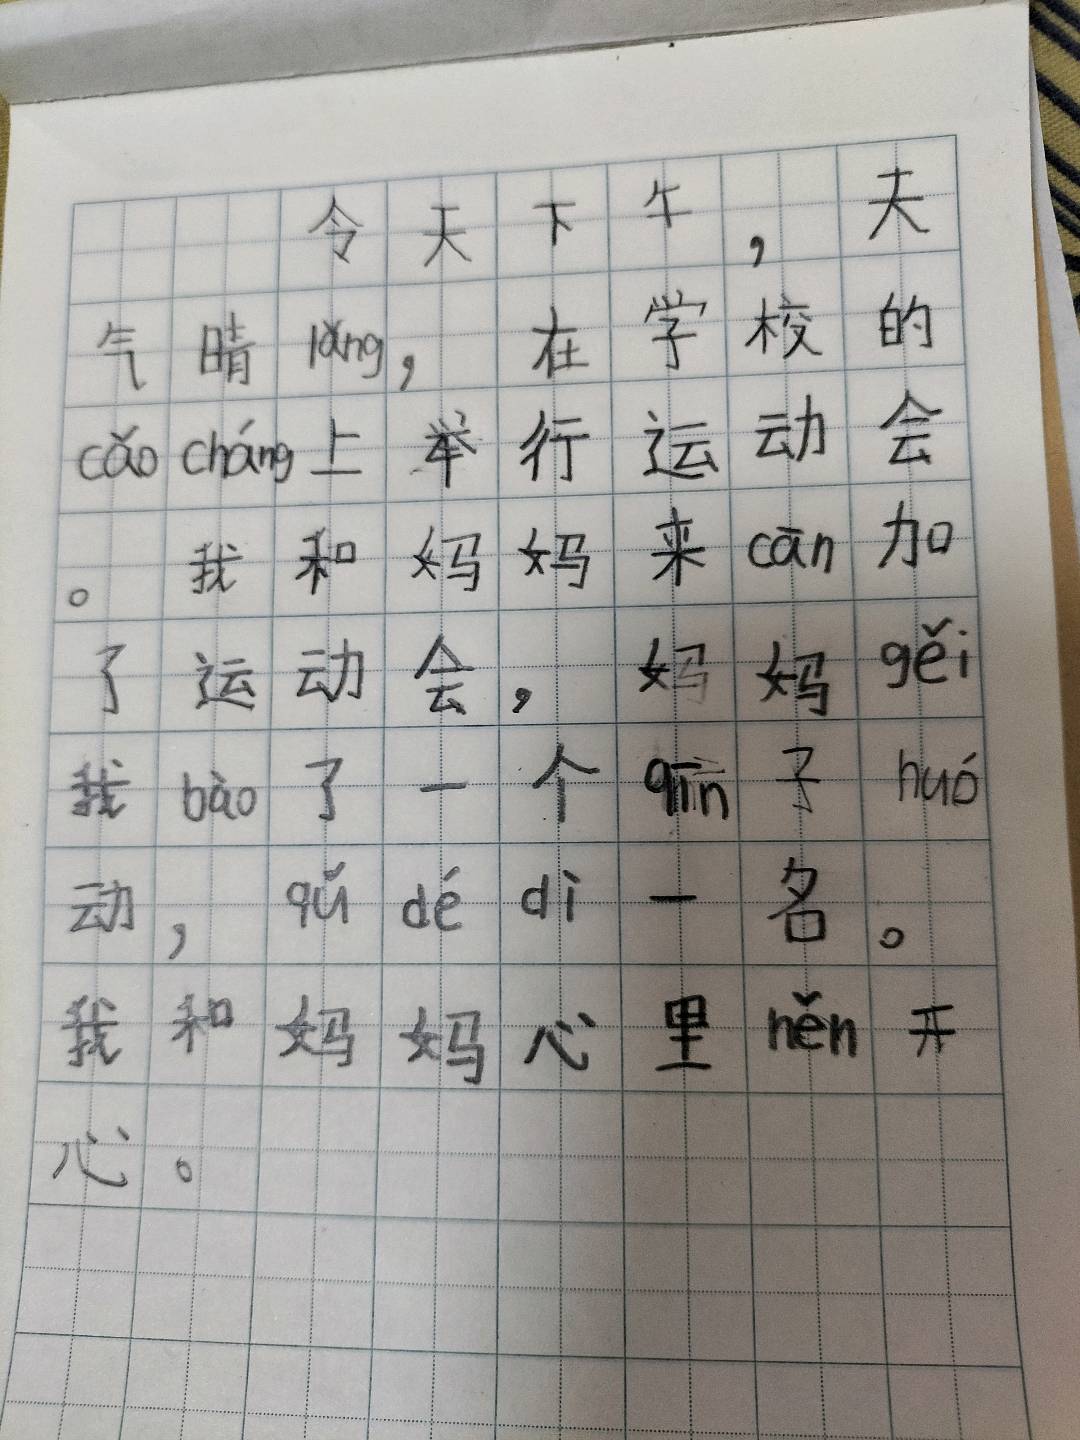 令天下午，天
气晴lǎng，在学校的
cǎo cháng上举行运动会
。我和妈妈来cān加
了运动会，妈妈gěi
我bào了一个qīn子huó
动，qǔ dé dì一名。
我和妈妈心里hěn开
心。